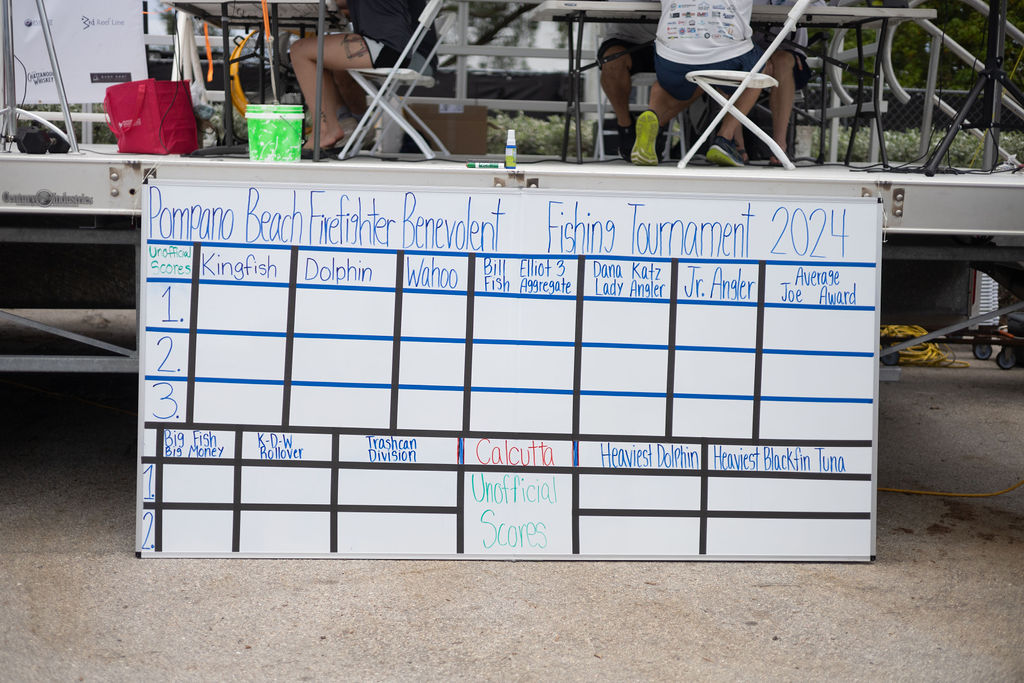 3rd Reef Line
Chattanooga
Whiskey
Century Industries
Pompano Beach Firefighter Benevolent Fishing Tournament 2024
Unofficial
Scores
Kingfish
Dolphin
Wahoo
Bill
Fish
Elliot 3
Aggregate
Dana Katz
Lady Angler
Jr. Angler
Average
Joe Award
1.
2.
3.
Big Fish
Big Money
K-D-W
Rollover
Trashcan
Division
Calcutta
Heaviest Dolphin
Heaviest Blackfin Tuna
1.
2.
Unofficial
Scores